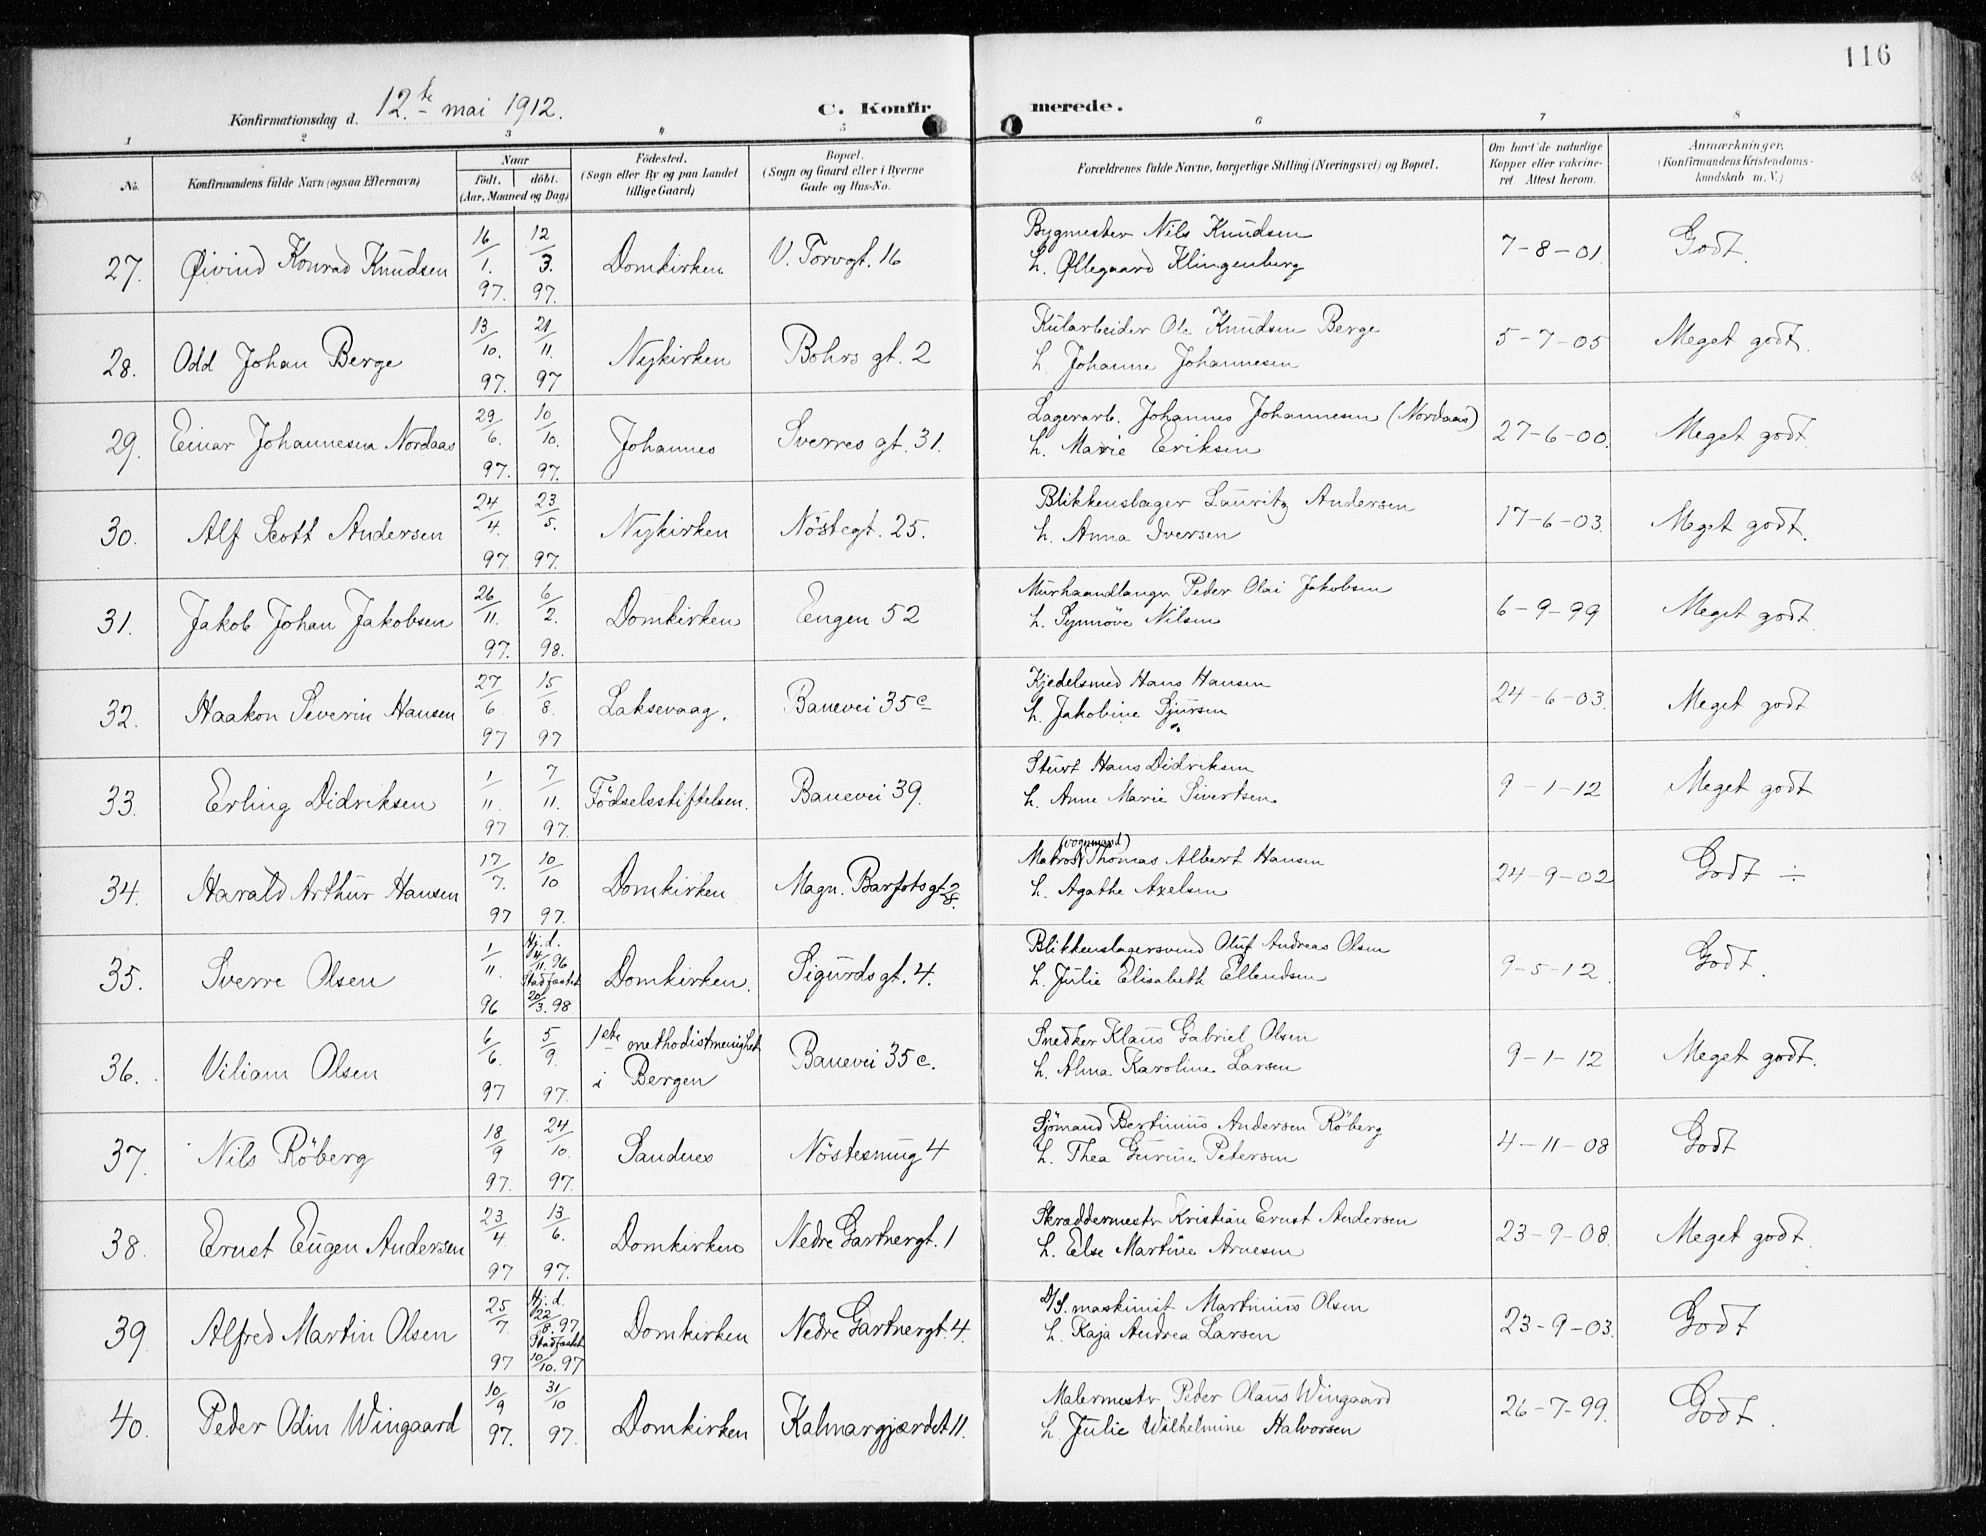 116
Konfirmationsdag d. 12.te mai 1912.
C. Konfirmerede.
1 2 3 4 5 6 7 8
No.
Konfirmandens fulde Navn (ogsaa Efternavn)
Naar
født. døbt.
(Aar, Maaned og Dag)
Fødested.
(Sogn eller By og paa Landet
tillige Gaard)
Bopæl.
(Sogn og Gaard eller i Byerne
Gade og Hus-No.
Forældrenes fulde Navne, borgerlige Stilling (Næringsvei) og Bopæl.
Om havt de naturlige
Kopper eller vakcine-
ret Attest herom.
Anmærkninger.
(Konfirmandens Kristendoms-
kundskab m. V.)
27. Øivind Konrad Knudsen 16/1. 97. 12/3. 97. Domkirken V. Torvgt. 16
Bygmester Nils Knudsen
h. Øllegaard Klingenberg
7-8-01. Godt.
28. Odd Johan Berge 13/10. 97. 21/11. 97 Nykirken Bohrs gt. 2
Kularbeider Ole Knudsen Berge
h. Johanne Johannesen
5-7-05 Meget godt.
29. Einar Johannesen Nordaas 29/6. 97. 10/10. 97. Johannes Sverres gt. 31.
Lagerarb. Johannes Johannesen (Nordaas)
h. Marie Eriksen
27-6-00. Meget godt
30. Alf Scott Andersen 24/4. 97. 23/5. 97. Nykirken Nöstegt. 25.
Blikkenslager Lauritz Andersen
h. Anna Iversen
17-6-03. Meget godt.
31. Jakob Johan Jakobsen 26/11. 97. 6/2. 98. Domkirken Engen 52
Murhaandlanger Peder Olai Jakobsen
h. Synnöve Nilsen
6-9-99 Meget godt
32. Haakon Severin Hansen 27/6. 97 15/8. 97 Laksevaag. Banevei 35c
Kjedelsmed Hans Hansen
h. Jakobine Sjursen
24-6-03. Meget godt
33. Erling Didriksen 1/11. 97 7/11. 97. Födselsstiftelsen. Banevei 39.
Sturt Hans Didriksen
h. Anne Marie Sivertsen
9-1-12 Meget godt
34. Harald Arthur Hansen 17/7. 97 10/10 97. Domkirken Magn. Barfots gt. 28.
(vognmand)
Matros Thomas Albert Hansen
h. Agathe Axelsen
24-9-02 Godt ÷
35. Sverre Olsen 1/11. 96 Hj.d. 4/11. 96 Stadfæstet 20/3. 98 Domkirken. Sigurds gt. 4.
Blikkenslagersvend Oluf Andreas Olsen
h. Julie Elisabeth Ellendsen
9-5-12 Godt.
36. Viliam Olsen 6/6. 97 5/9. 97. 1ste methodistmenighet
i Bergen Banevei 35c.
Snedker Klaus Gabriel Olsen
h. Alma Karoline Larsen
9-1-12 Meget godt.
37. Nils Röberg 18/9 97. 24/10. 97. Sandnes Nöstesmug 4
Sjömand Bertinius Andersen Röberg
h. Thea Gurine Petersen
4-11-08 Godt
38. Ernst Eugen Andersen 23/4. 97 13/6. 97. Domkirken Nedre Gartnergt. 1
Skræddermester Kristian Ernst Andersen
h. Else Martine Arnesen
23-9-08. Meget godt.
39. Alfred Martin Olsen 25/7. 97 Hj.d. 22/8. 97 Stadfæstet 10/10. 97 Domkirken Nedre Gartnergt. 4.
D/S. maskinist Martinius Olsen
h. Kaja Andrea Larsen
23-9-03. Godt
40. Peder Odin Wingaard 10/9 97. 31/10 97. Domkirken Kalmargjærdet 11.
Malermester Peder Olaus Wingaard
h. Julie Wilhelmine Halvorsen
26-7-99. Godt.